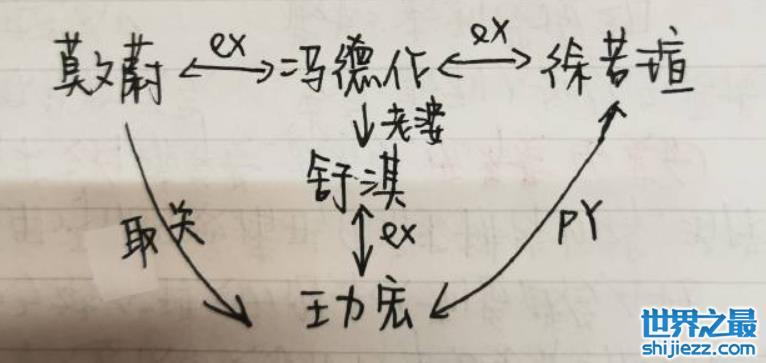 莫文蔚 ex 冯德伦 ex 徐若瑄
老婆
舒淇
取关 ex PY
王力宏
世界之最
shijiezz.com